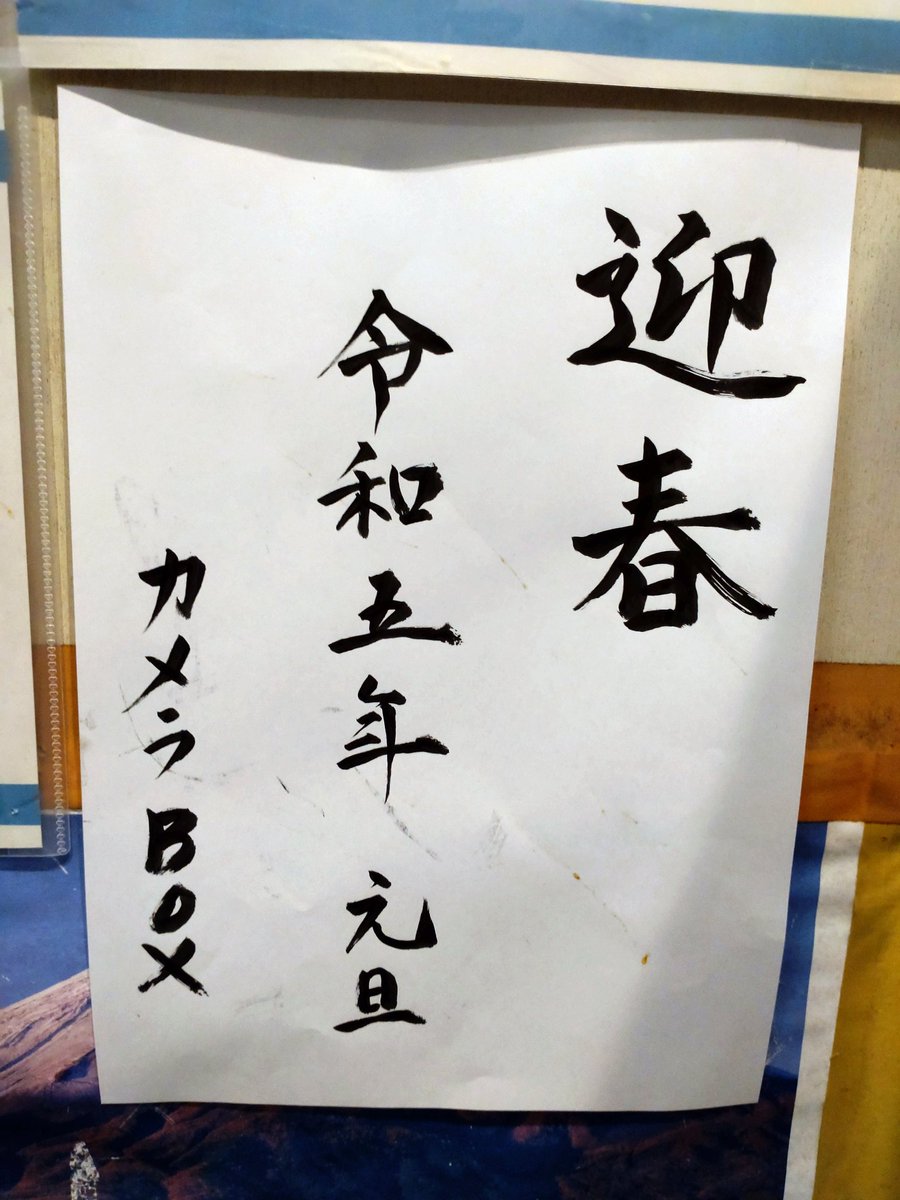 迎春
令和五年 元旦
カメラBOX